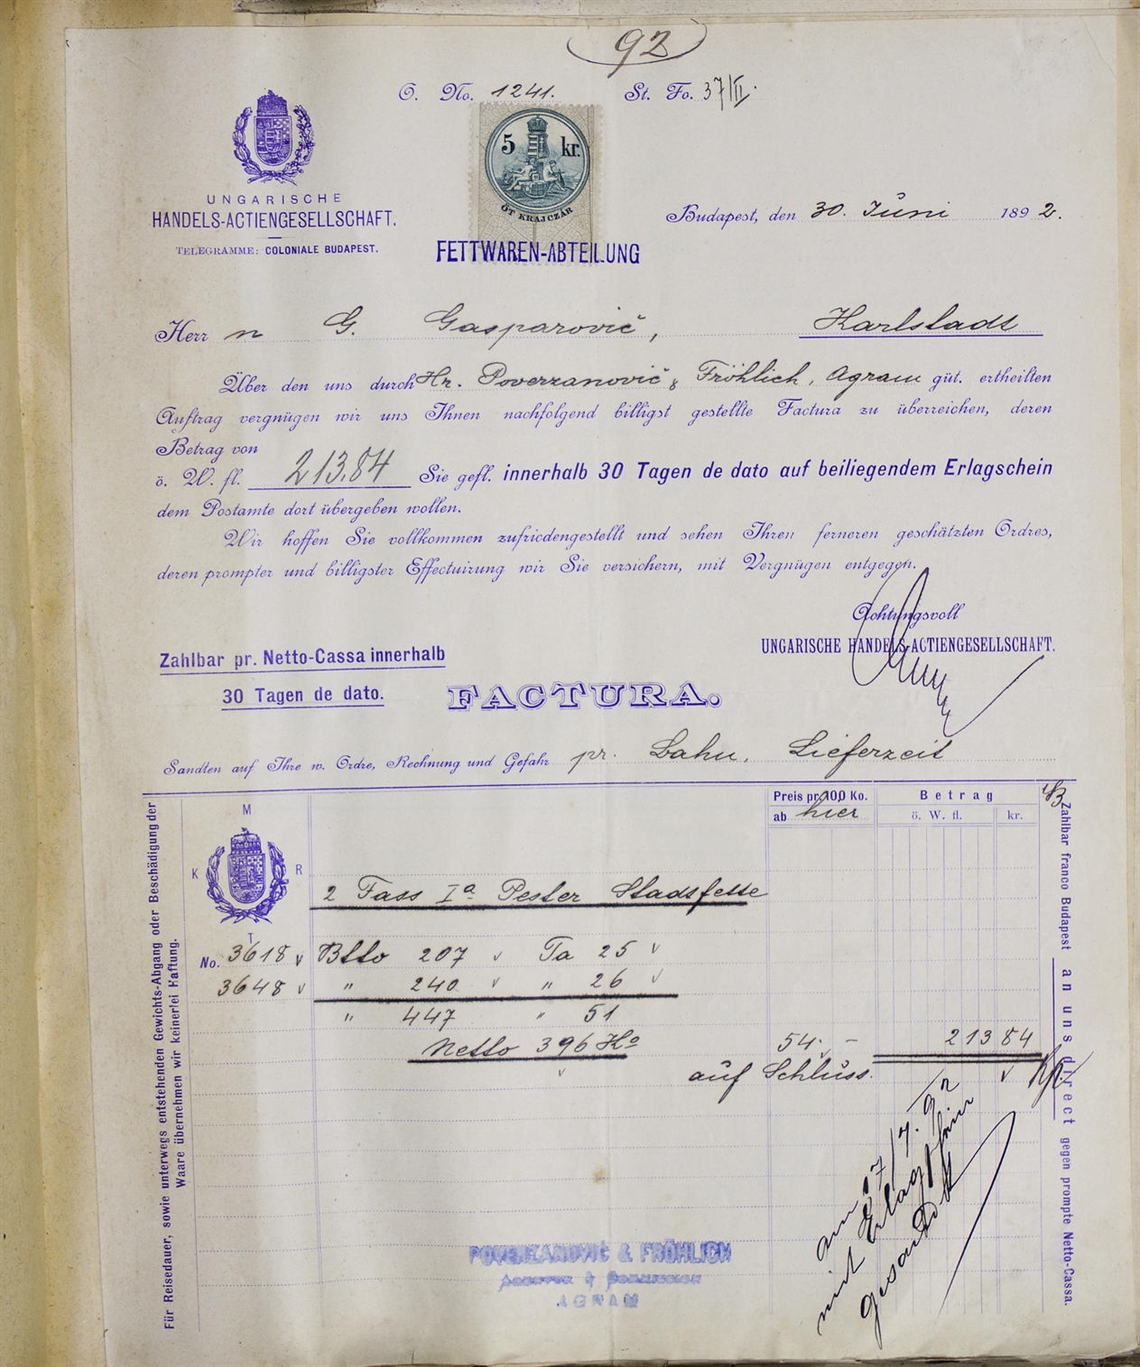 92
O. No. 1241. St. Fo. 37/II.
5 kr.
ÖT KRAJCZÁR
UNGARISCHE
HANDELS-ACTIENGESELLSCHAFT.
TELEGRAMME: COLONIALE BUDAPEST.
Budapest, den 30. Juni 1892.
FETTWAREN-ABTEILUNG
Herr n G. Gasparovič, Karlstadt
Über den uns durch Hr. Poverzanovič & Fröhlich, Agram güt. ertheilten
Auftrag vergnügen wir uns Ihnen nachfolgend billigst gestellte Factura zu überreichen, deren
Betrag von
ö. W. fl. 213.84 Sie gefl. innerhalb 30 Tagen de dato auf beiliegendem Erlagschein
dem Postamte dort übergeben wollen.
Wir hoffen Sie vollkommen zufriedengestellt und sehen Ihren ferneren geschätzten Ordres,
deren prompter und billigster Effectuirung wir Sie versichern, mit Vergnügen entgegen.
Achtungsvoll
UNGARISCHE HANDELS-ACTIENGESELLSCHAFT.
Zahlbar pr. Netto-Cassa innerhalb
30 Tagen de dato.
FACTURA.
Sandten auf Ihre w. Ordre, Rechnung und Gefahr pr. Bahn, Lieferzeit
Preis pr. 100 Ko. Betrag
ab hier ö. W. fl. kr.
M
K R
T
2 Fass Iª Pester Stadtfette
No. 3618 Btto 207 Ta 25
3648 " 240 " 26
" 447 " 51
Netto 396 Ko 54.- 213 84
auf Schluss.
am 17/7. 92
mit Erlagschein
gesandt
POVERZANOVIĆ & FRÖHLICH
AGENTUR & COMMISSION
AGRAM
Für Reisedauer, sowie unterwegs entstehenden Gewichts-Abgang oder Beschädigung der
Waare übernehmen wir keinerlei Haftung.
Zahlbar franco Budapest an uns direct gegen prompte Netto-Cassa.